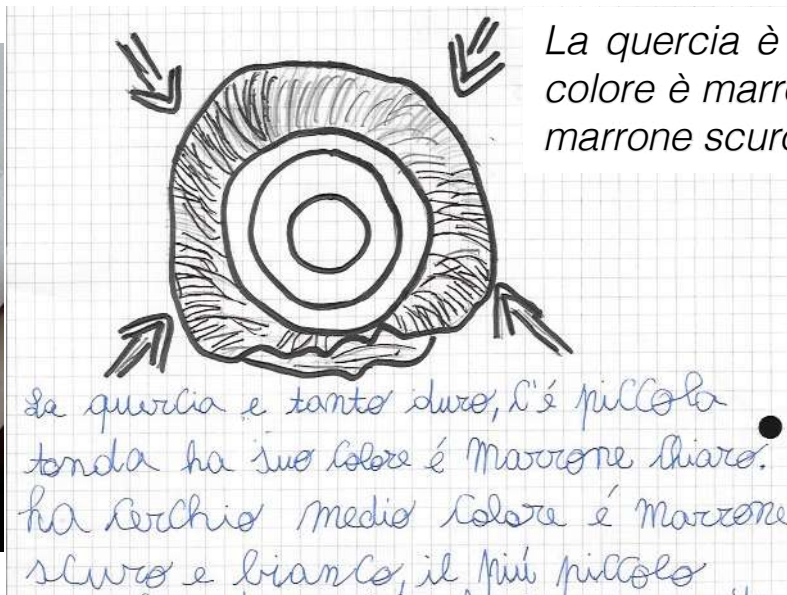 La quercia è
colore è marro
marrone scuro
La quercia e tanto duro, c'é piccola
tonda ha suo colore é Marrone chiaro.
ha cerchio medio colore é Marrone
scuro e bianco, il piú piccolo